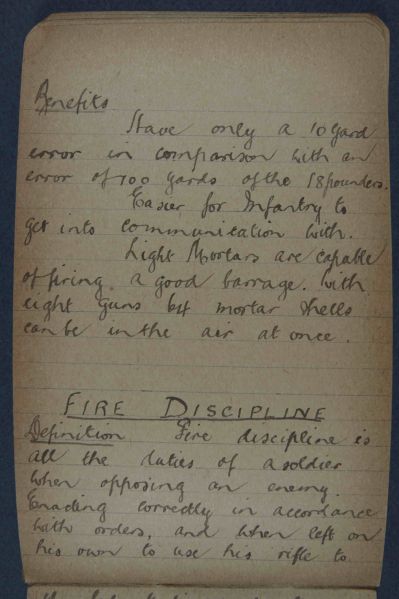 Benefits
Have only a 10 yard
error in comparison with an
error of 100 yards of the 18 pounders.
Easier for Infantry to
get into communication with.
Light Mortars are capable
of firing a good barrage. With
eight guns 64 mortar shells
can be in the air at once.
FIRE DISCIPLINE
Definition Fire discipline is
all the duties of a soldier
when opposing an enemy.
correctly in accordance
with orders, and when left on
his own to use his rifle to